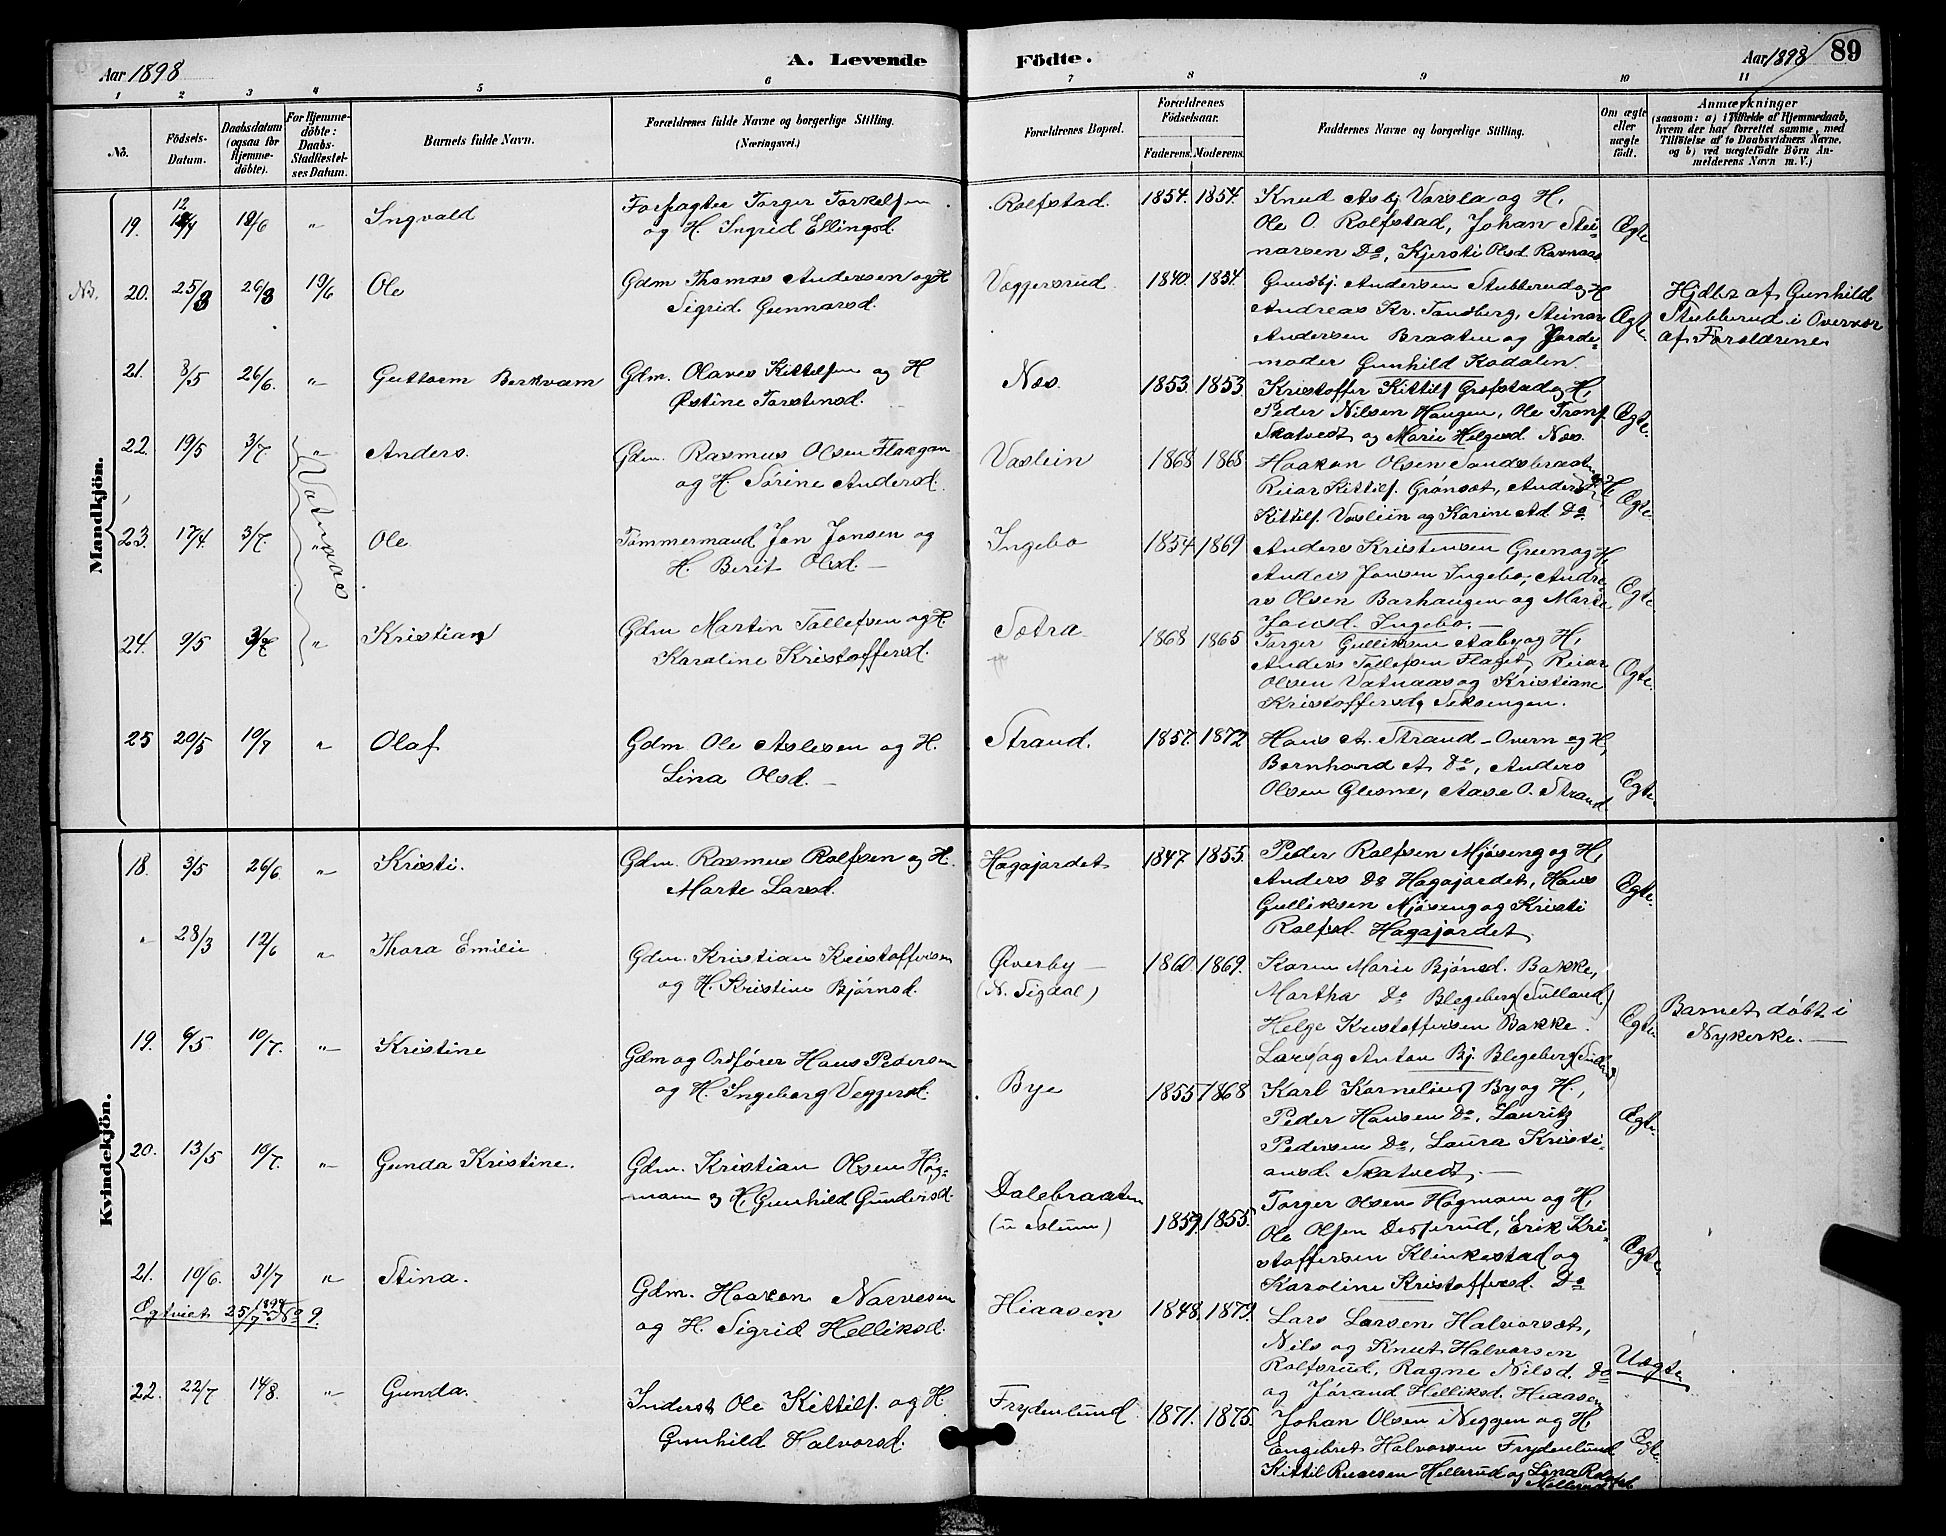 Aar 1898
A. Levende
Födte.
Aar 1898
89
1 2 3 4 5 6 7 8 9 10 11
No.
Födsels-
Datum.
Daabsdatum
(ogsaa for
Hjemme-
döbte).
For Hjemme-
döbte:
Daabs-
Stadfæstel-
ses Datum.
Barnets fulde Navn.
Forældrenes fulde Navne og borgerlige Stilling.
(Næringsvei.)
Forældrenes Bopæl.
Forældrenes
Födselsaar.
Faderens. Moderens.
Faddernes Navne og borgerlige Stilling.
Om ægte
eller
uægte
födt.
Anmærkninger
(saasom: a) i Tilfælde af Hjemmedaab,
hvem der har forrettet samme, med
Tilföielse af to Daabsvidners Navne,
og b) ved uægtefödte Börn An-
melderens Navn m. V.)
Mandkjön.
19. 12/4 19/6 " Ingvald
Forpagter Torger Torkelsen
og H. Ingrid Ellingsd.
Rolfstad. 1854. 1854.
Knud Asbj. Varsla og H,
Ole O. Rolfstad, Johan Stei-
narsen Do, Kjersti Olsd. Ravnaas
Ægte
NB. 20. 25/3 26/3 19/6 Ole
Gdm Thomas Andersen og H
Sigrid Gunnarsd.
Væggersrud. 1840. 1854.
Gundbj. Andersen Stubberud og H
Andreas Kr. Tandberg, Steinar
Andersen Braaten og Jorde-
moder Gunhild Kodalen.
Ægte
Hjdbt af Gunhild
Stubberud i Overvær
af Forældrene
21. 8/5 26/6. " Guttorm Berkvam
Gdm. Olaves Kittelsen og H
Østine Torstensd.
Næs. 1853. 1853.
Kristoffer Kittils. Grøfstad og H,
Peder Nilsen Haugen, Ole Trons.
Skatvedt og Marie Helgesd. Næs.
Ægte.
22. 19/5 3/7. " Anders.
Vatnaas
Gdm. Rasmus Olsen Flaagan
og H. Sørine Andersd.
Vaslein 1868 1868
Haakon Olsen Sandsbraaten og H,
Reiar Kittils. Grønsæt, Anders
Kittils. Vaslein og Karine Ad. Do
Ægte.
23. 17/4. 3/7. " Ole
Tømmermand Jon Jonsen og
H. Berit Olsd. —
Ingebo 1854 1869
Anders Kristensen Green og H,
Anders Jonsen Ingebo, Andre-
as Olsen Barhaugen og Marte
Jonsd. Ingebo. —
Ægte.
24. 9/5 3/7 " Kristian
Gdm Martin Tollefsen og H.
Karoline Kristoffersd.
Sætra 1868 1865
Torger Gulliksen Aaby og H,
Anders Tollefsen Flaget, Reiar
Olsen Vatnaas og Kristiane
Kristoffersd. Seksengen.
Ægte.
25 20/5 10/7 " Olaf
Gdm. Ole Aslesen og H.
Lina Olsd. —
Strand. 1857. 1872
Hans A. Strand-Overn og H,
Bernhard A Do, Anders
Olsen Glesne, Aase O. Strand.
Ægte.
Kvindekjön.
18. 3/5 26/6 " Kristi.
Gdm. Rasmus Rolfsen og H.
Marte Larsd.
Hagajordet 1847. 1855.
Peder Rolfsen Mjøseng og H,
Anders Do Hagajordet, Hans
Gulliksen Mjøseng og Kristi
Rolfsd. Hagajordet.
Ægte.
" 28/3 12/6 " Thora Emilie
Gdm. Kristian Kristoffersen
og H. Kristine Bjørnsd.
Øverby —
(N. Sigdal) 1860. 1869.
Karen Marie Bjørnsd. Bakke,
Martha Do Blegeberg (Tulland)
Helge Kristoffersen Bakke.
Lars og Anton Bj. Blegeberg
Ægte.
Barnet døbt i
Nykirke. —
19. 6/5 10/7. " Kristine
Gdm og Ordfører Hans Pedersen
og H. Ingeborg Veggersd.
Bye 1855 1868
Karl Kornelius By og H,
Peder Hansen Do, Lauritz
Pedersen Do, Laura Kristi-
ansd. Skatvedt. —
Ægte.
20. 13/5 10/7. " Gunda Kristine.
Gdm. Kristian Olsen Hög-
mann og H. Gunhild Gundersd.
Dalebraaten
(u Solum) 1859. 1855.
Torger Olsen Högmann og H,
Ole Olsen Desserud, Erik Kri-
stoffersen Klinkestad og
Karoline Kristoffersd. Do
Ægte.
21. 10/6. 31/7 " Stina.
Egtviet 25/7 1898 No 9.
Gdm. Haakon Narvesen
og H. Sigrid Helliksd.
Hiaasen 1848. 1879.
Lars Larsen Halvorsæt,
Nils og Knut Halvorsen
Rolfsrud, Ragne Nilsd. Do
og Jørand Helliksd. Hiaasen
Uægte
22. 22/7 14/8. " Gunda.
Inderst Ole Kittils. og H.
Gunhild Halvorsd.
Frydenlund. 1871. 1875.
Johan Olsen Neggen og H,
Engebret Halvorsen Frydenlund
Kittil Reiersen Hellerud og Lina
Ægte